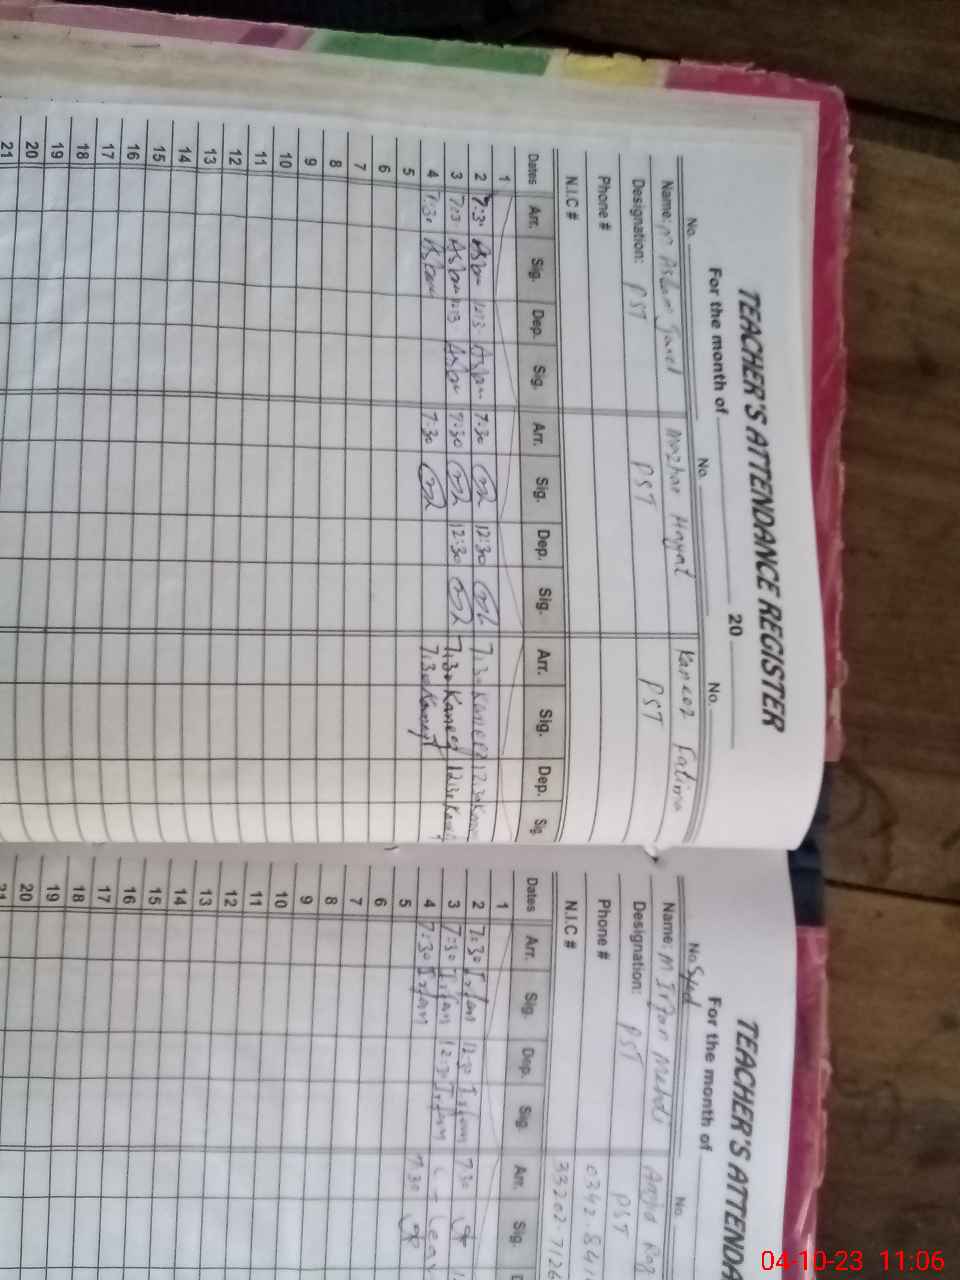 TEACHER'S ATTENDANCE REGISTER
For the month of 20
No. No. No.
Name: M Aslam Mazhar Hayat Kaneez Fatima
Designation: PST PST PST
Phone #
N.I.C #
Dates Arr. Sig. Dep. Sig. Arr. Sig. Dep. Sig. Arr. Sig. Dep. Sig
1
2 7:30 7:30 12:30 7:30 Kaneez 12:30
3 7:30 12:30 7:30 Kaneez 12:30
4 7:30 7:30 7:30 Kaneez
5
6
7
8
9
10
11
12
13
14
15
16
17
18
19
20
21
TEACHER'S ATTENDA
For the month of
No. Syed No.
Name: M Irfan Mehdi
Designation: PST PST
Phone # 0342-841
N.I.C # 33202-7126
Dates Arr. Sig. Dep. Sig. Arr. Sig.
1
2 7:30 Irfan 12:30 Irfan 7:30
3 7:30 Irfan 12:30 Irfan Leav
4 7:30 Irfan 7:30
5
6
7
8
9
10
11
12
13
14
15
16
17
18
19
20
21
04-10-23 11:06